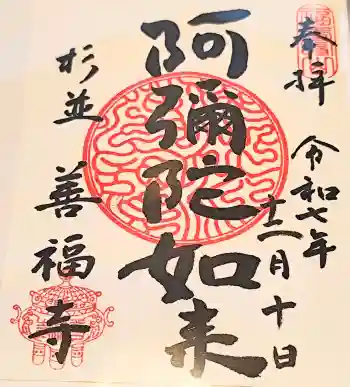 奉拝
令和七年
十二月十日
阿彌陀如来
杉並
善福寺